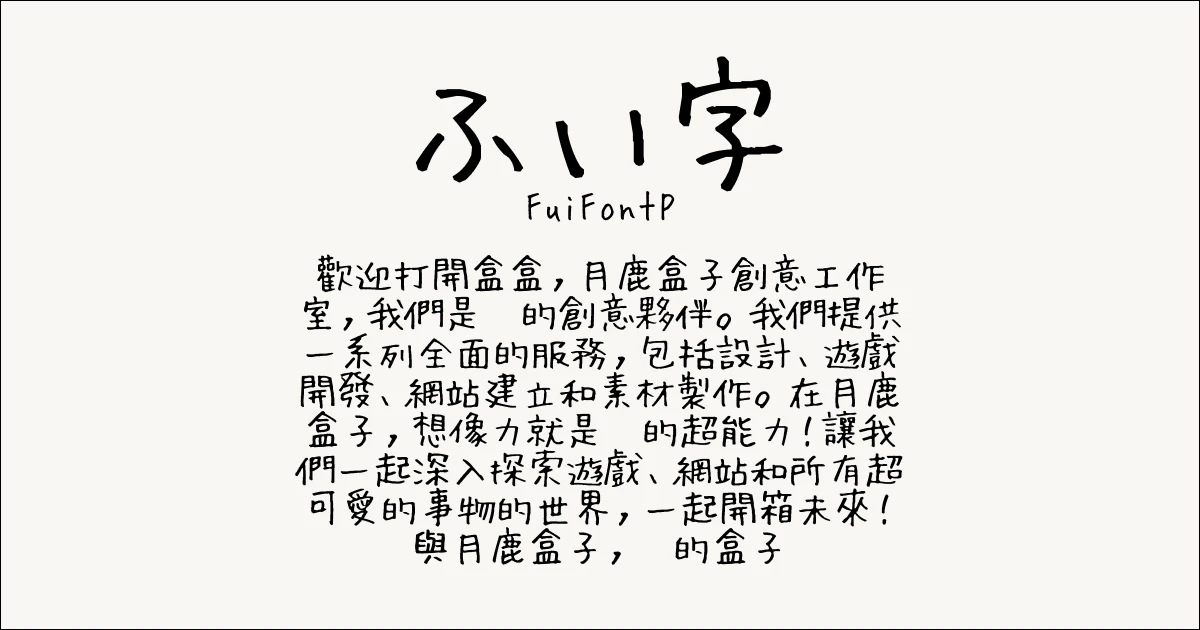 ふい字
FuiFontP
歡迎打開盒盒，月鹿盒子創意工作
室，我們是　的創意夥伴。我們提供
一系列全面的服務，包括設計、遊戲
開發、網站建立和素材製作。在月鹿
盒子，想像力就是　的超能力！讓我
們一起深入探索遊戲、網站和所有超
可愛的事物的世界，一起開箱未來！
與月鹿盒子，　的盒子